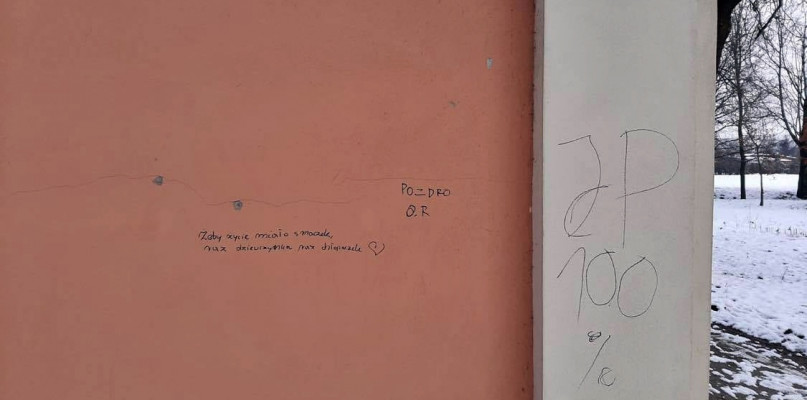 Żeby życie miało smaczek
raz dziewczynka raz chłopaczek
POZDRO
Q.R
JP
100
%